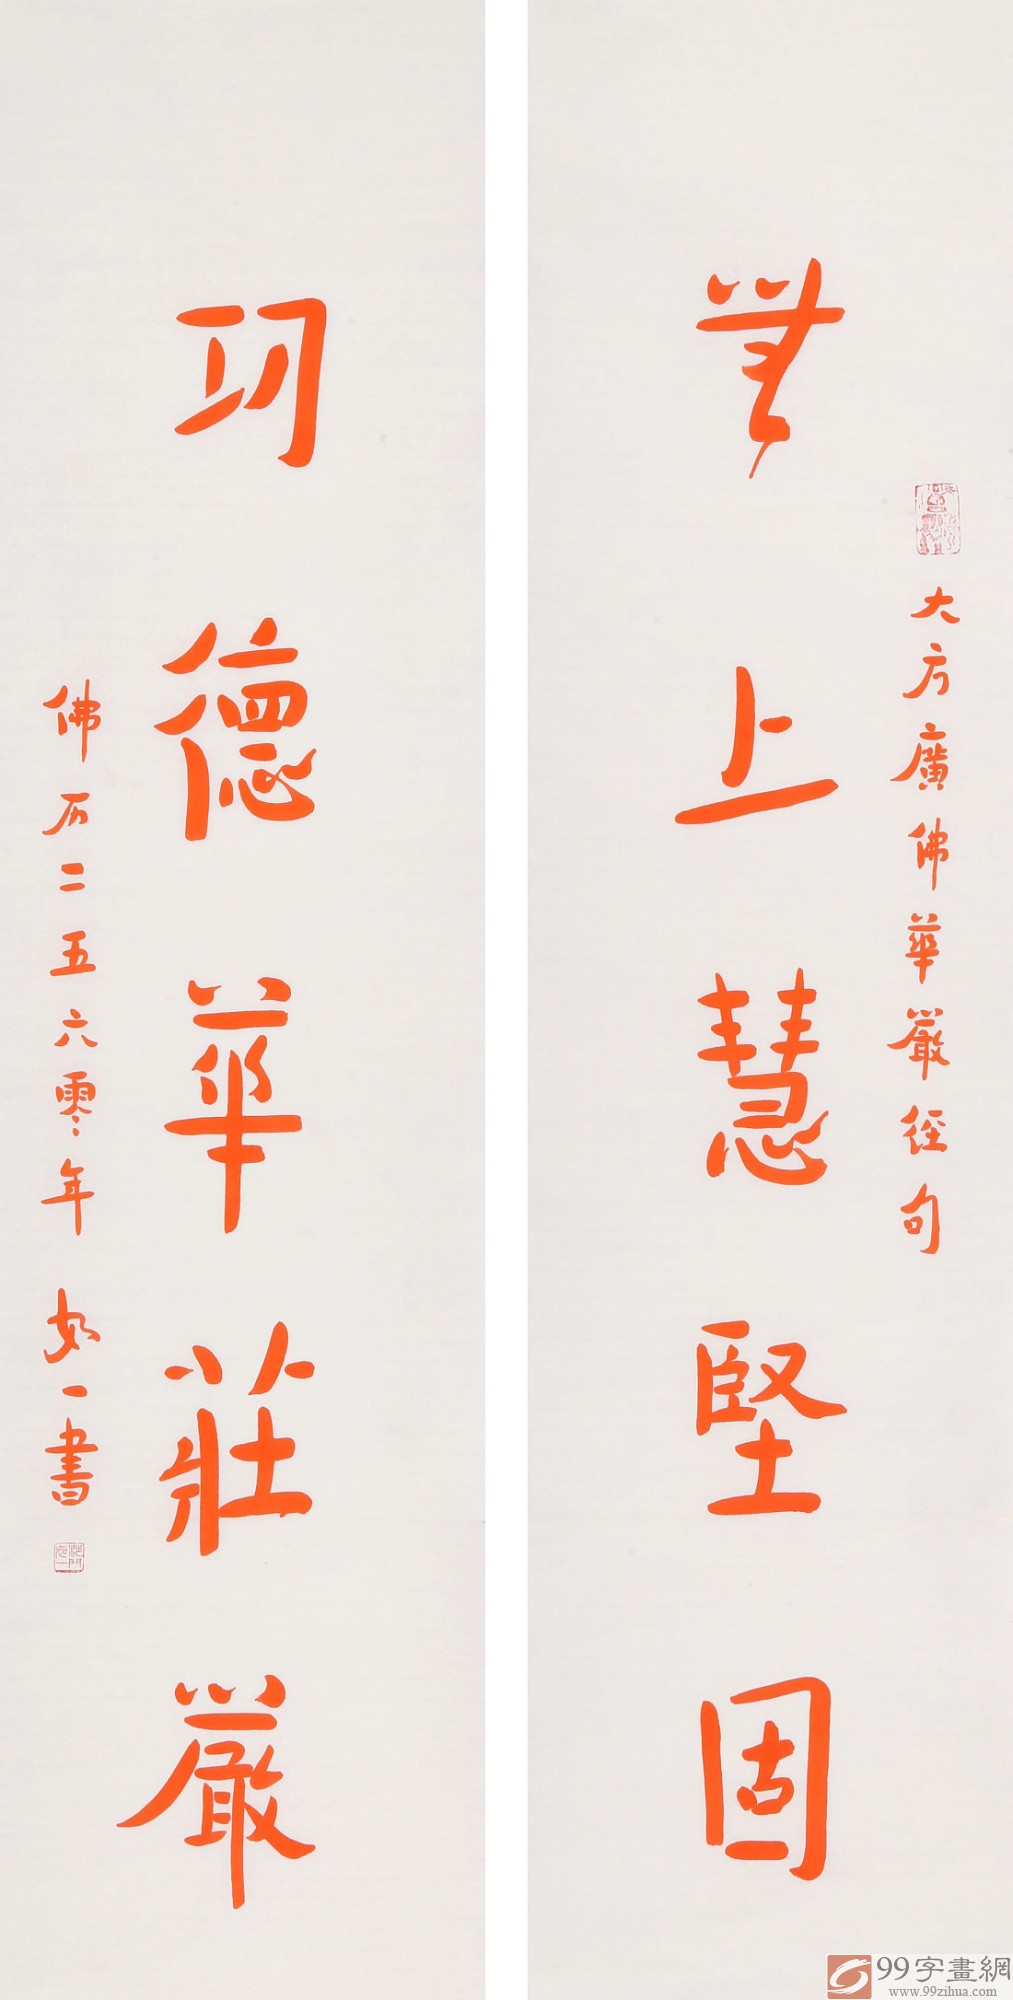 大方廣佛華嚴径句
無上慧堅固
功德華莊嚴
佛历二五六零年 如一書
99字畫網
www.99zihua.com